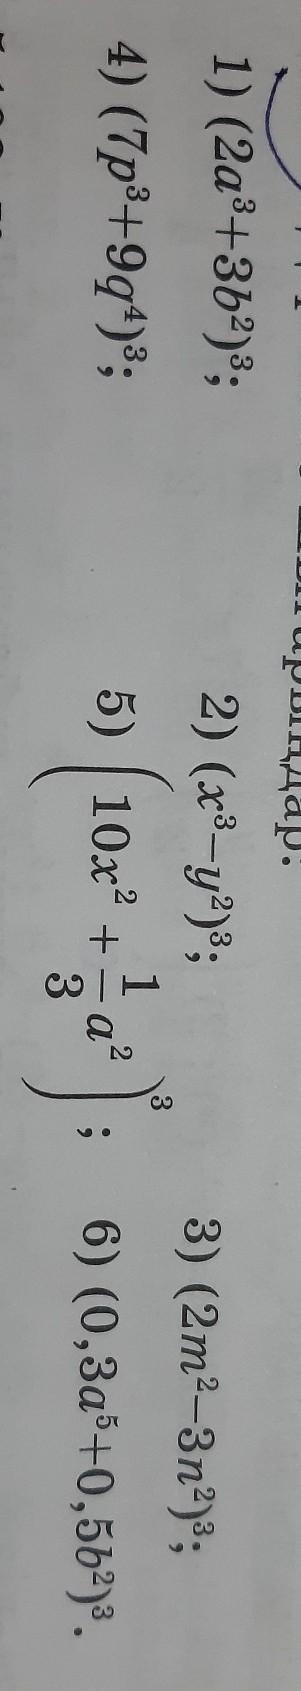 1) (2a³+3b²)³; 2) (x³–y²)³; 3) (2m²–3n²)³;
4) (7p³+9q⁴)³; 5) (10x² + 1/3 a²)³; 6) (0,3a⁵+0,5b²)³.